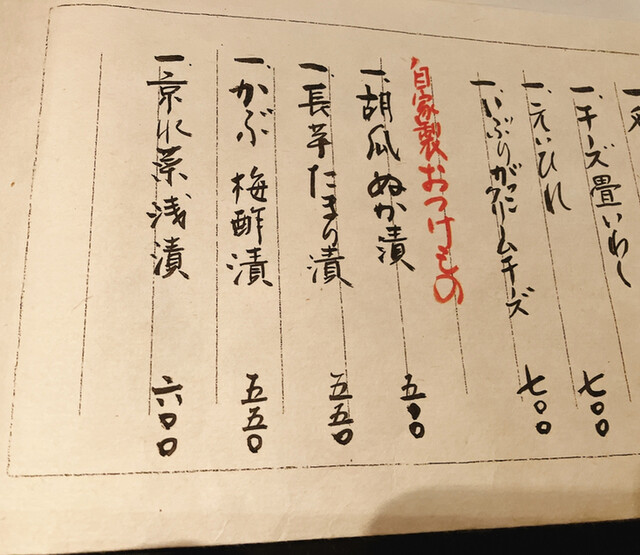 一、チーズ畳いわし 七〇〇
一、えいひれ 七〇〇
一、いぶりがっこクリームチーズ
自家製おつけもの
一、胡瓜ぬか漬 五〇〇
一、長芋たまり漬 五五〇
一、かぶ 梅酢漬 五五〇
一、京水菜浅漬 六〇〇